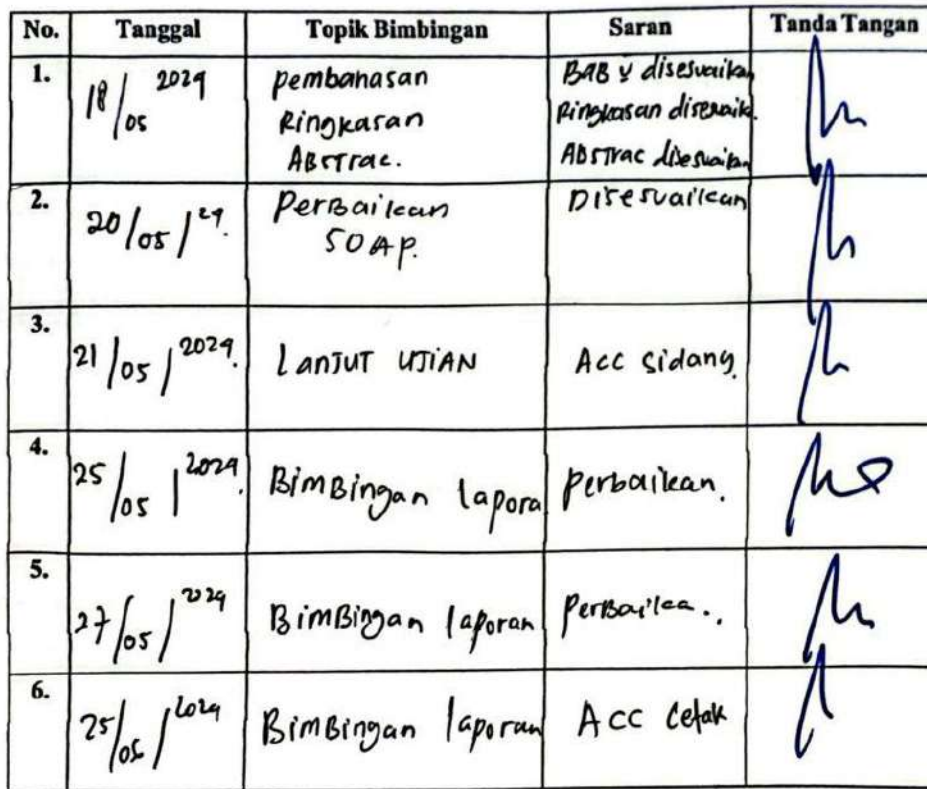 No. Tanggal Topik Bimbingan Saran Tanda Tangan
1. 18/05 2024 pembahasan BAB V disesuaikan
Ringkasan Ringkasan disesuaik.
ABSTrac. ABSTrac disesuaikan
2. 20/05/24. PerBaikan Disesuaikan
SOAP.
3. 21/05/2024. LanJUT UJIAN Acc sidang.
4. 25/05/2024. BimBingan lapora perbaikan.
5. 27/05/2024 BimBingan laporan PerBaikan.
6. 25/ /2024 BimBingan laporan ACC Cetak